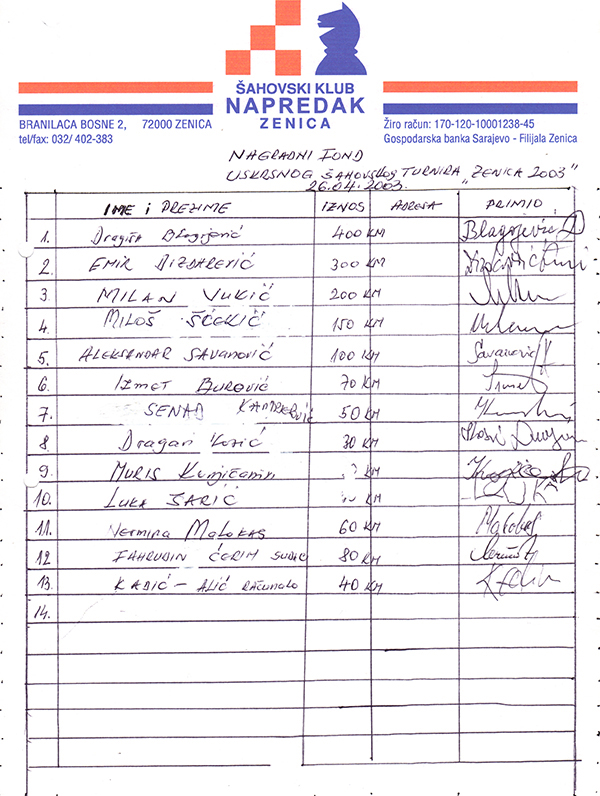 ŠAHOVSKI KLUB
NAPREDAK
ZENICA
BRANILACA BOSNE 2, 72000 ZENICA
tel/fax: 032/ 402-383
Žiro račun: 170-120-10001238-45
Gospodarska banka Sarajevo - Filijala Zenica
NAGRADNI FOND
USKRSNOG ŠAHOVSKOG TURNIRA „ZENICA 2003"
26.04.2003.
IME i PREZIME IZNOS ADRESA PRIMIO
1. Dragiša Blagojević 400 KM Blagojević D
2. EMIR DIZDAREVIĆ 300 KM
3. MILAN VUKIĆ 200 KM
4. MILOŠ ŠĆEKIĆ 150 KM
5. ALEKSANDAR SAVANOVIĆ 100 KM Savanović
6. IZMET BUROVIĆ 70 KM
7. SENAD 50 KM
8. Dragan Kosić 30 KM
9. MURIS KM
10. LUKA ŠARIĆ KM LUKA
11. Nermina MALOKAS 60 KM Malokas
12 FAHRUDIN ĆERIM SUDIJE 80 KM
13. KADIĆ - ALIĆ RAČUNALO 40 KM
14.